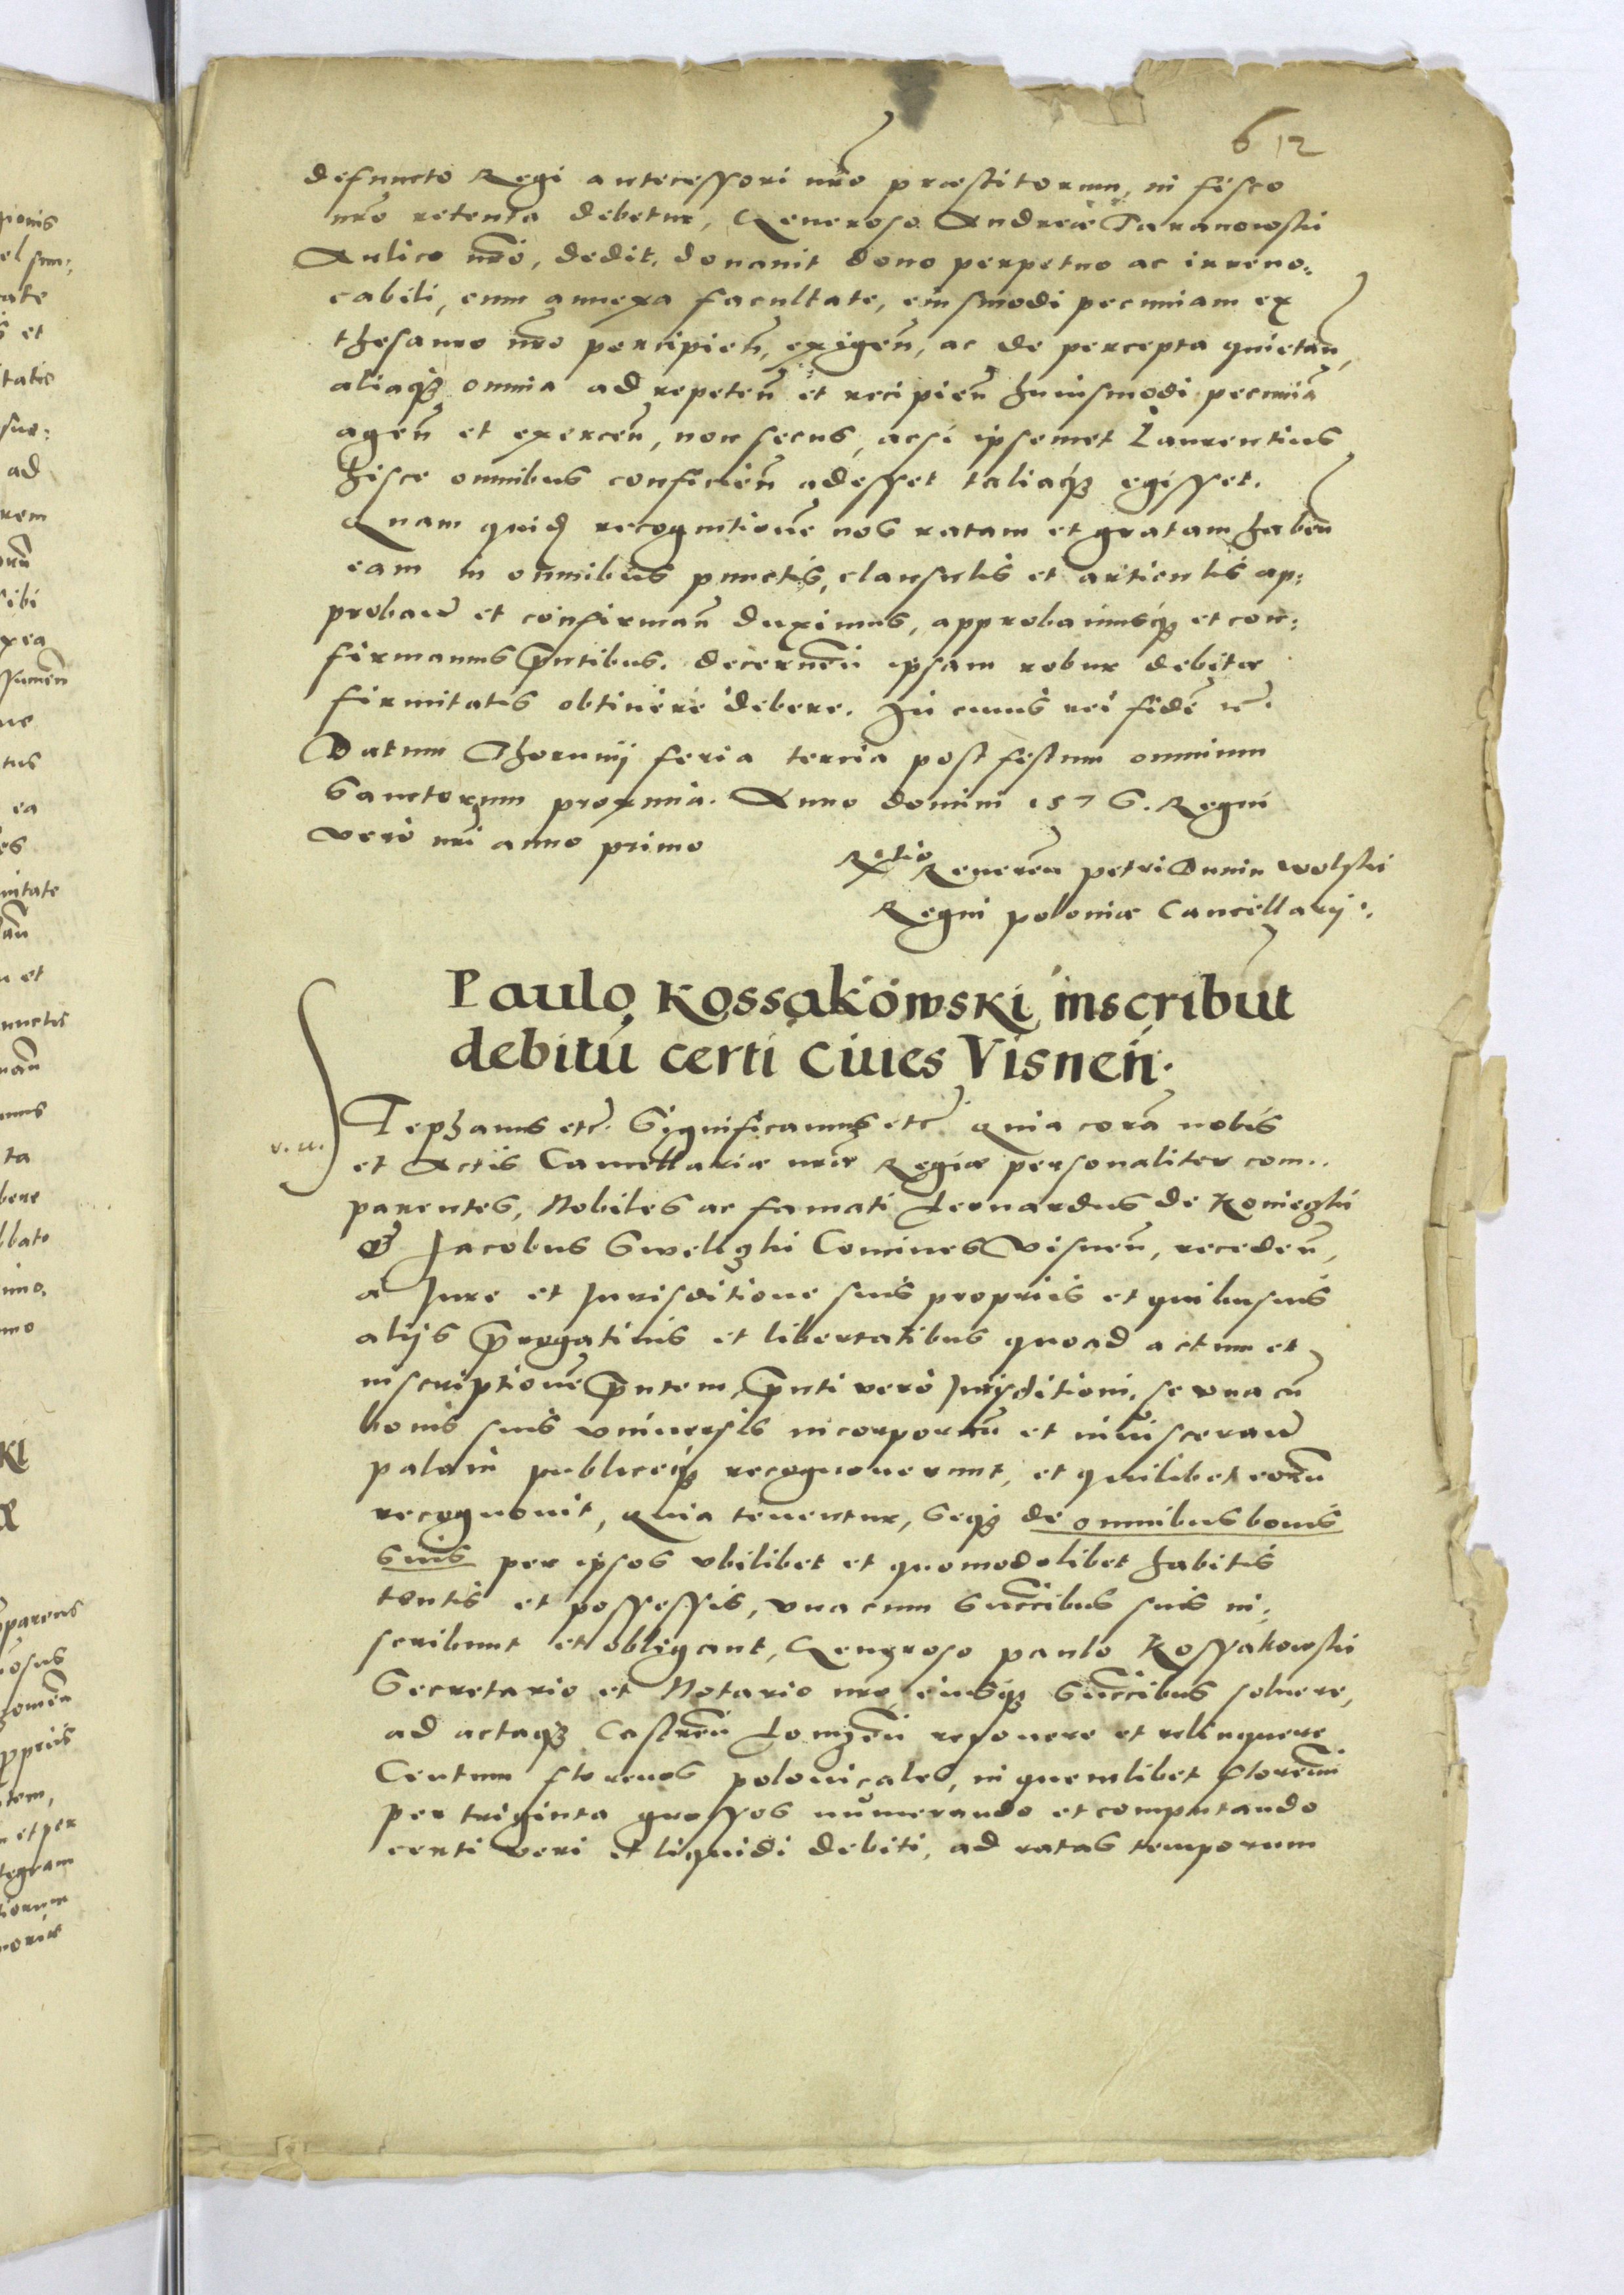 612
defuncto Regi antecessori nro præstitorum, in fisco
nro retenta debetur, Generoso Andreæ Taranowski
Aulico nro, dedit, donavit dono perpetuo ac irreuo:
cabili, cum annexa facultate, eiusmodi pecuniam ex
thesauro nro percipien, exigen, ac de percepta quietan,
aliaqʒ omnia ad repeten et recipien huiusmodi pecuniã
agen et exercen, non secus, acsi ipsemet Laurentius
hisce omnibus conficien adesset taliaqʒ egisset.
Quam quid recognitionē nos ratam et gratam haben
eam in omnibus punctis, clausulis et articulis ap:
proban et confirman duximus, approbamusqʒ et con:
firmamus pntibus. decernen ipsam robur debitæ
firmitatis obtinere debere. In cuius rei fidē etc.
Datum Thorunij feria tercia post festum omnium
Sanctorum proxima. Anno domini 1576. Regni
vero nri anno primo
Rtio Reueren petri Dunin wolski
Regni poloniæ Cancellarij.
Paulo Kossakowski inscribūt
debitū certi Ciues Visnen.
r. u.
Tephanus etc. Significamus etc. quia corã nobis
et Actis Cancellariæ nræ Regiæ personaliter com:
parentes, Nobiles ac famati Leonardus de Konieczki
& Jacobus Gwelczki Conciues Visnen, receden,
a Jure et Jurisditione suis proprijs et quibusuis
alijs prerogatiuis et libertatibus quoad actum et
inscriptionē pntem, pnti vero Jurisditioni, se vna cũ
bonis suis vniuersis incorporan et inuisceran
palam publiceqʒ recognouerunt, et quilibet eorũ
recognouit, quia tenentur, seqʒ de omnibus bonis
suis per ipsos vbilibet et quomodolibet habitis
tentis et possessis, vna cum succribus suis in:
scribunt et obligant, Generoso paulo Kossakowski
Secretario et Notario nro, eiusqʒ succribus soluere,
ad actaqʒ Castren Lomzen reponere et relinquere
Centum florenos polonicales, in quemlibet florenū
per triginta grossos numerando et computando
certi veri et liquidi debiti, ad ratas temporum